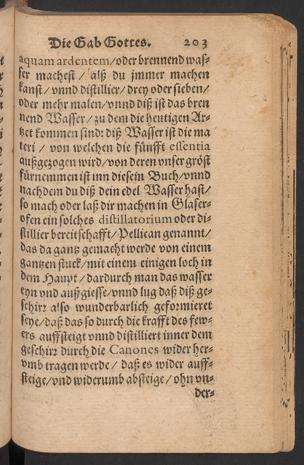 Die Gab Gottes. 203
aquam ardentem/oder brennend was-
ser machest / alß du jmmer machen
kanst/vnnd distillier/drey oder sieben/
oder mehr malen/vnnd diß ist das bren
nend Wasser/zu dem die heutigen Ar-
tzet kommen sind: diß Wasser ist die ma
teri / von welchen die fünfft essentia
außgezogen wird/von deren vnser gröst
fürnemmen ist inn diesem Buch/vnnd
nachdem du diß dein edel Wasser hast/
so mach oder laß dir machen in Glaser-
ofen ein solches distillatorium oder di-
stillier bereitschafft/Pellican genannt/
das da gantz gemacht werde von einem
gantzen stuck/mit einem einigen loch in
dem Haupt/dardurch man das wasser
eyn vnd außgiesse/vnnd lug daß diß ge-
schirr also wunderbarlich geformieret
seye/daß das so durch die krafft des few-
ers auffsteigt vnnd distilliert inner dem
geschirr durch die Canones wider her-
vmb tragen werde / daß es wider auff-
steige/vnd widerumb absteige/ohn vn-
der-